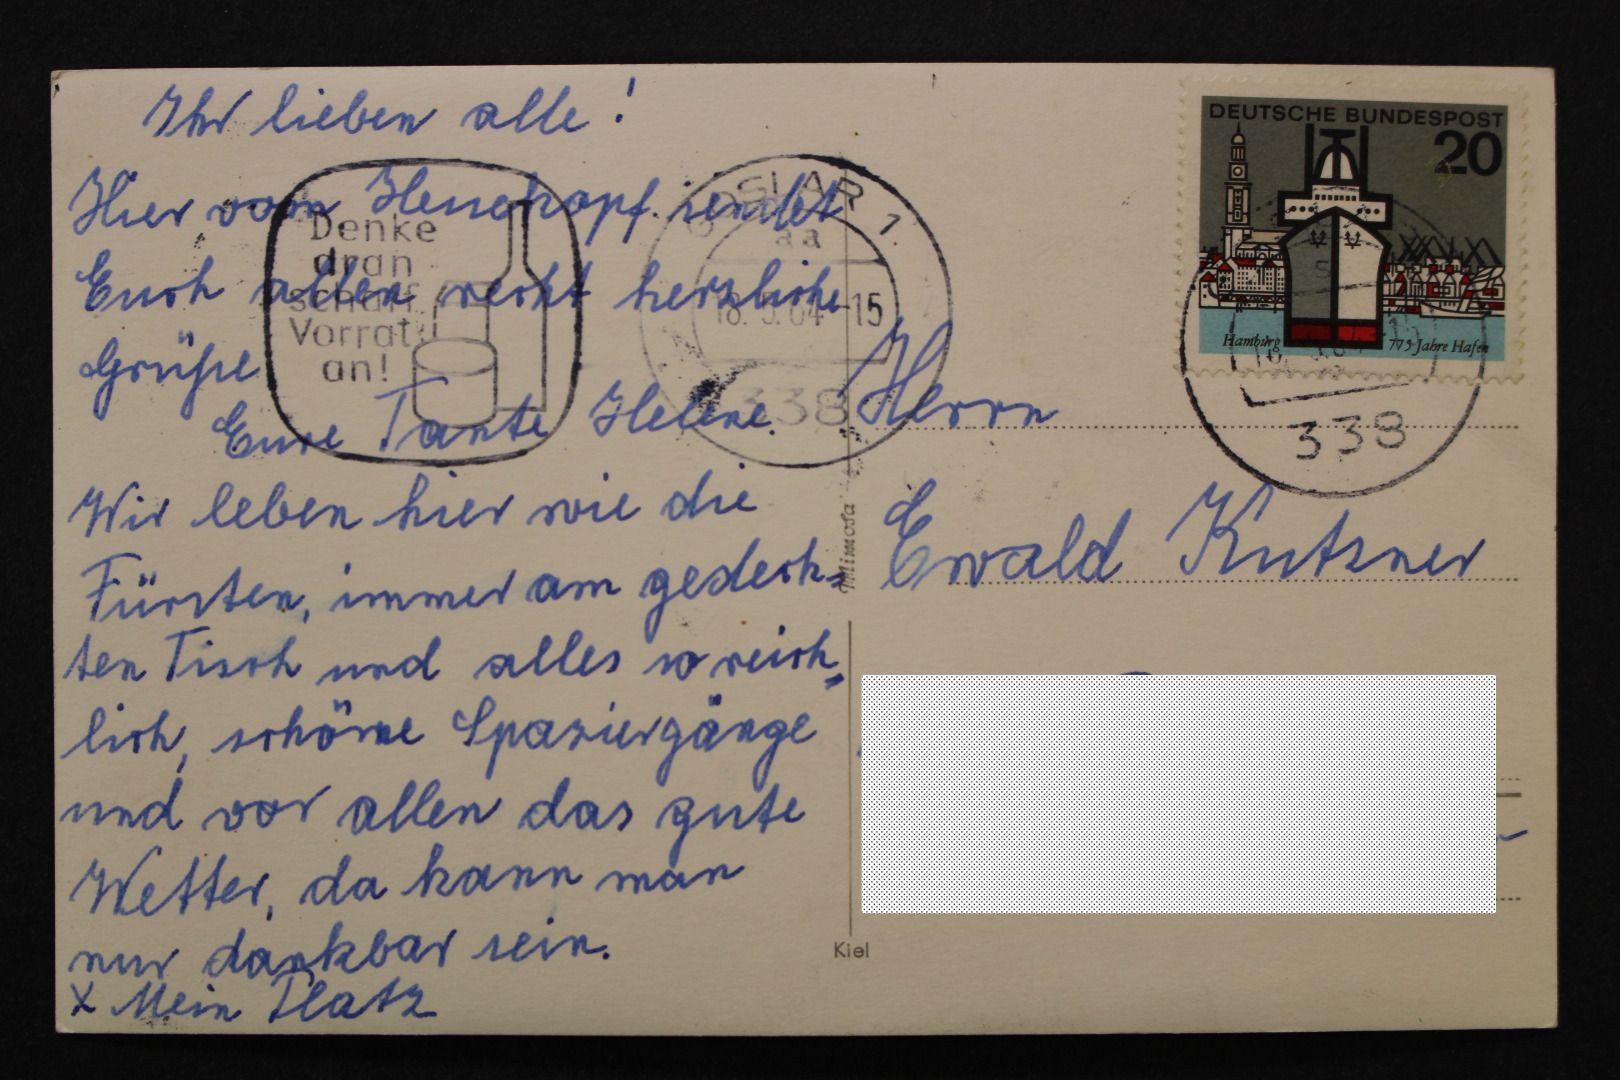 Ihr lieben alle!
Hier vom sendet
Euch allen recht herzliche
Grüße
Eure Tante Helene.
Wir leben hier wie die
Fürsten, immer am gedeck-
ten Tisch und alles so reich„
lich, schöne Spaziergänge
und vor allen das gute
Wetter, da kann man
nur dankbar sein.
X Mein Platz
Denke
dran
schaff
Vorrat
an!
GOSLAR 1
aa
18.5.64-15
338
DEUTSCHE BUNDESPOST
20
Hamburg 775 Jahre Hafen
338
Herrn
Ewald Kutzner
Mimosa
Kiel